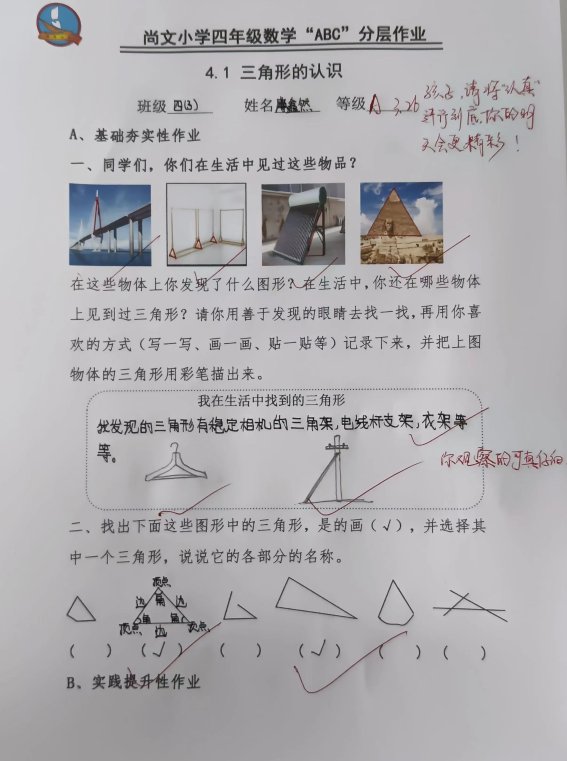 尚文小学四年级数学“ABC”分层作业
4.1 三角形的认识
班级 四(3) 姓名 等级 A 3.26
孩子,请将“认真”
进行到底,你的明
天会更精彩!
A、基础夯实性作业
一、同学们，你们在生活中见过这些物品？
在这些物体上你发现了什么图形？在生活中，你还在哪些物体
上见到过三角形？请你用善于发现的眼睛去找一找，再用你喜
欢的方式（写一写、画一画、贴一贴等）记录下来，并把上图
物体的三角形用彩笔描出来。
我在生活中找到的三角形
我发现的三角形有稳定相机的三角架,电线杆支架,衣架等
等。
你观察的可真仔细
二、找出下面这些图形中的三角形，是的画（√），并选择其
中一个三角形，说说它的各部分的名称。
顶点
边 角 边
角 角
顶点 边 顶点
（ ） （√） （ ） （√） （ ） （ ）
B、实践提升性作业